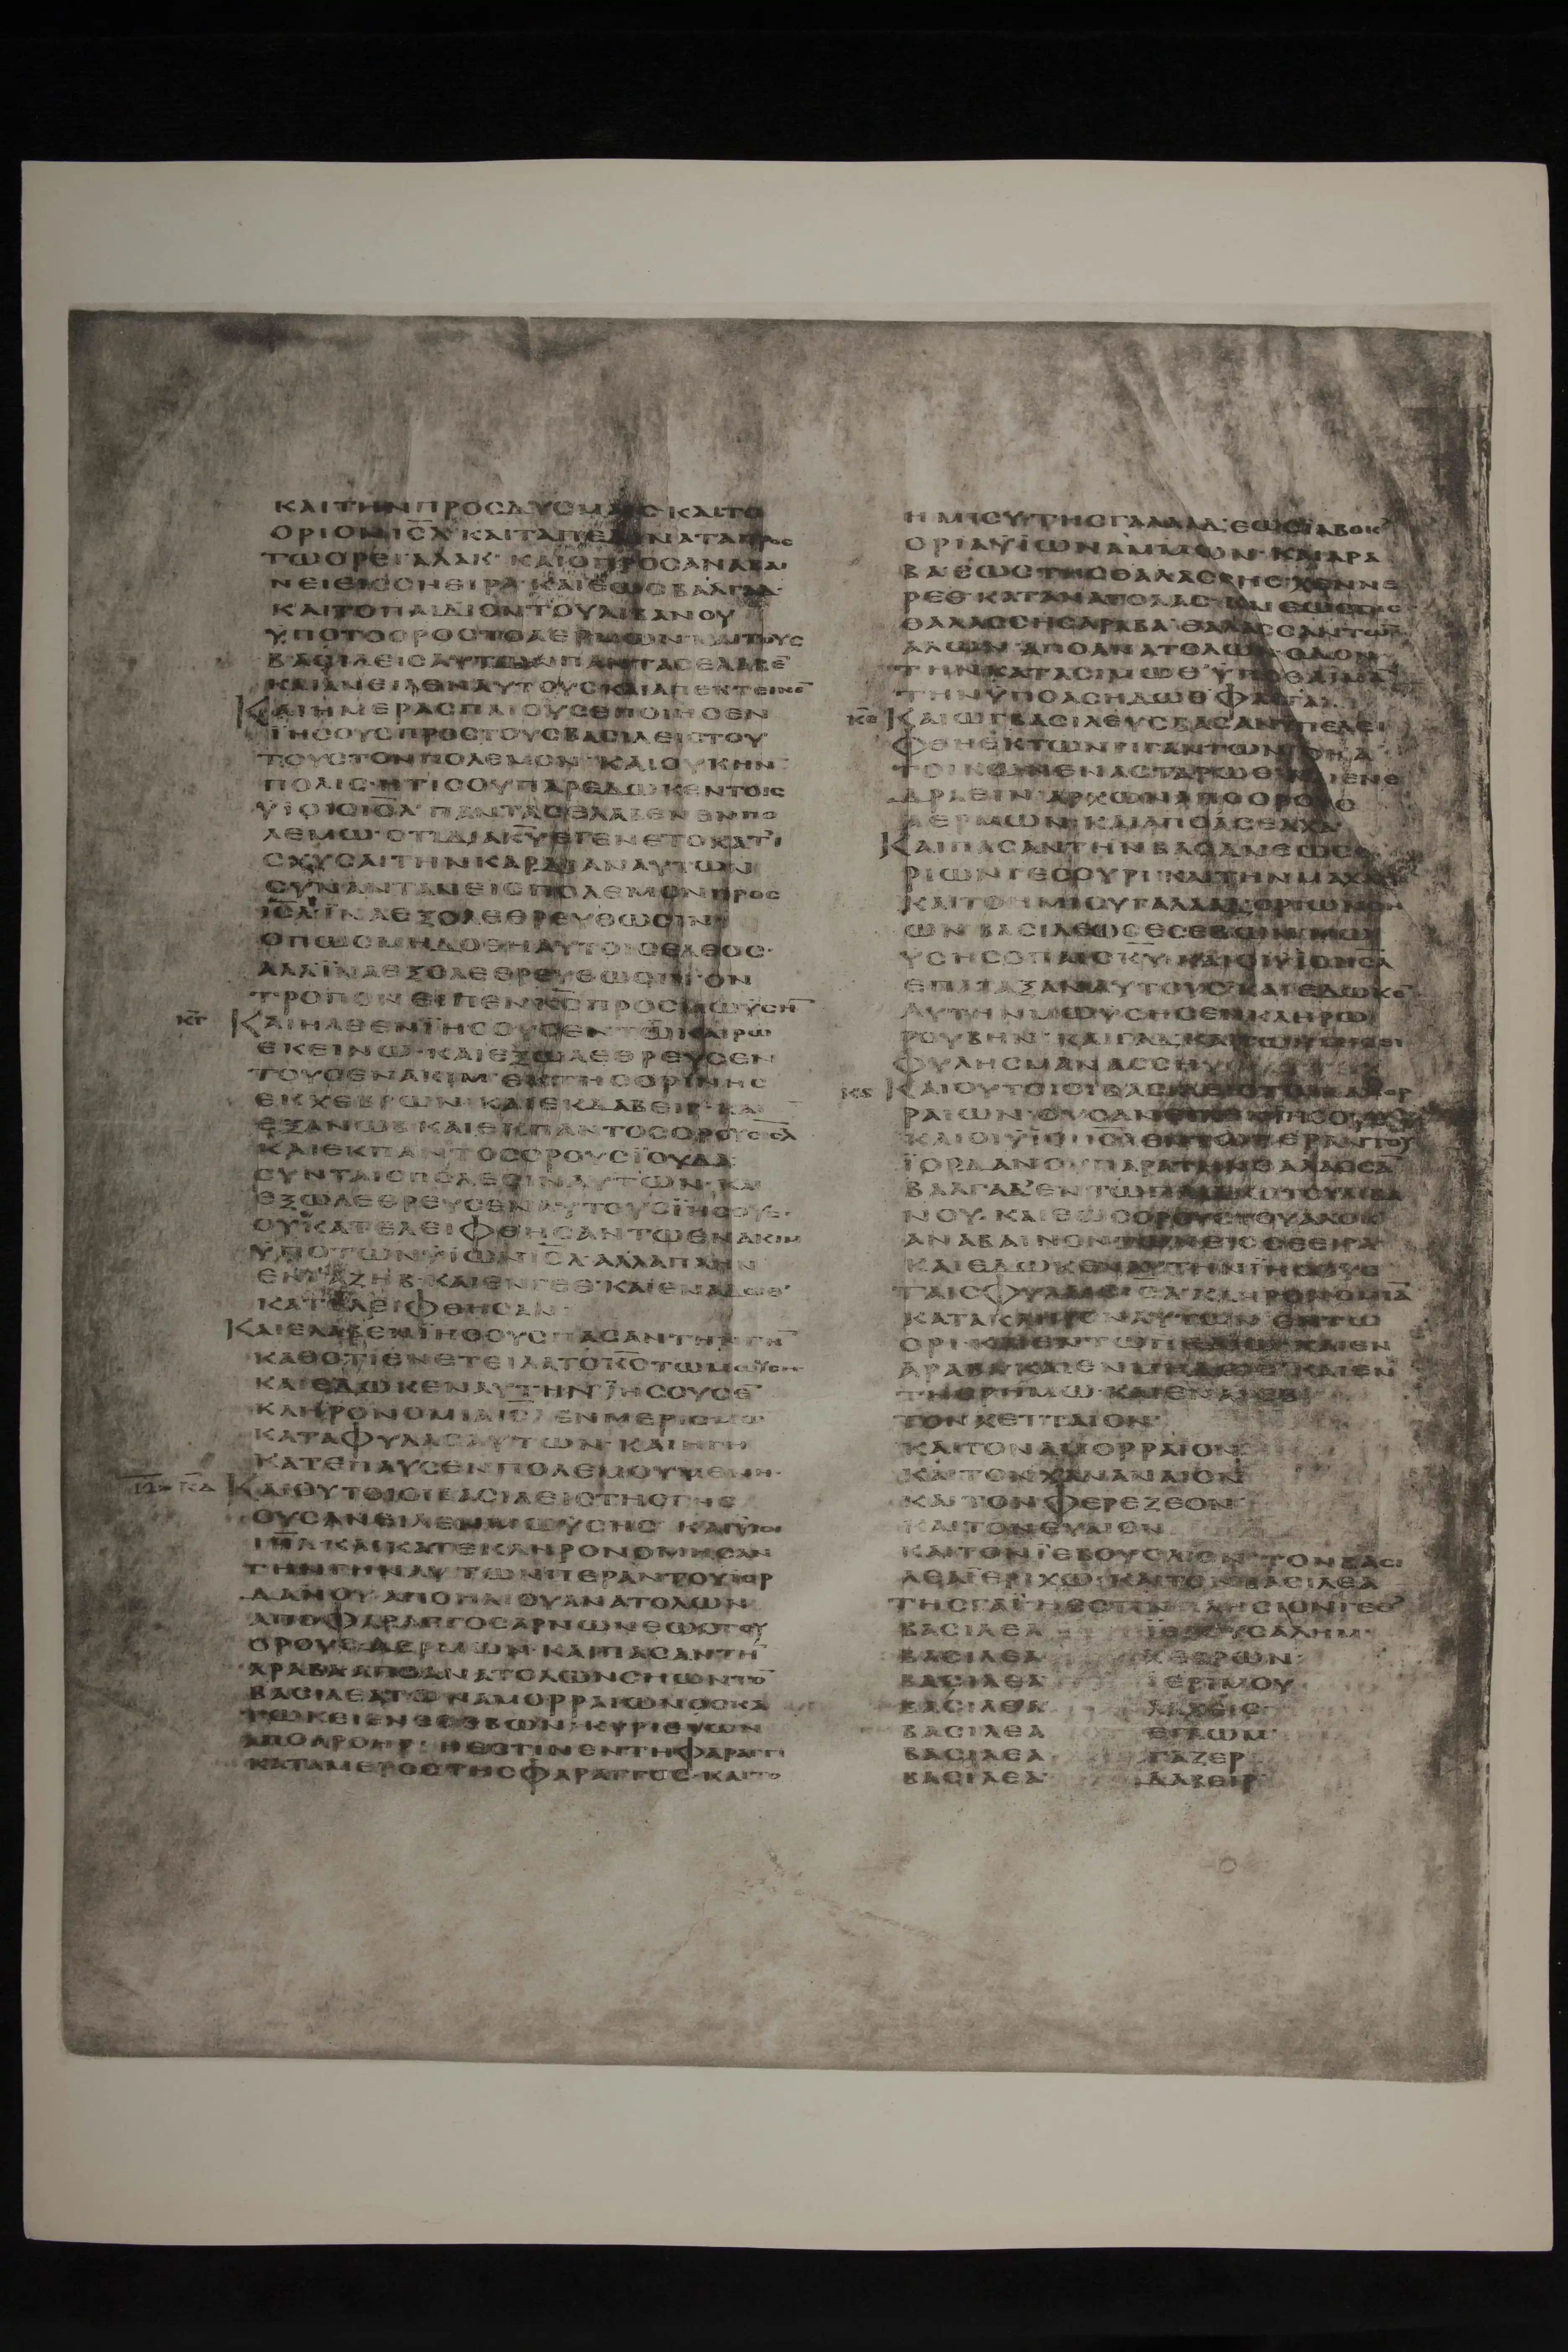 ΚΑΙΤΗΝΠΡΟΣΔΥΣΜΑΙΣ ΚΑΙΤΟ
ΟΡΙΟΝ ΙΣΛ ΚΑΙΤΑΠΕΔΙΝΑΤΑΠΡΟΣ
ΤΩΟΡΕΙ ΑΛΑΚ· ΚΑΙΟ ΠΡΟΣΑΝΑΒΑΙ
ΝΕΙΕΙΣΣΗΕΙΡΑ· ΚΑΙΕΩΣΒΑΛΓΑΔ·
ΚΑΙΤΟΠΑΙΔΙΟΝΤΟΥΛΙΒΑΝΟΥ
ΫΠΟΤΟΟΡΟΣΤΟΑΕΡΜΩΝ· ΚΑΙΤΟΥΣ
ΒΑΣΙΛΕΙΣΑΥΤΩΝΠΑΝΤΑΣΕΛΑΒΕ̄
ΚΑΙΑΝΕΙΛΕΝΑΥΤΟΥΣΚΑΙΑΠΕΚΤΕΙΝΕ̄
ΚΑΙΗΜΕΡΑΣΠΛΙΟΥΣΕΠΟΙΗΣΕΝ
ΪΗΣΟΥΣΠΡΟΣΤΟΥΣΒΑΣΙΛΕΙΣΤΟΥ
ΤΟΥΣΤΟΝΠΟΛΕΜΟΝ· ΚΑΙΟΥΚΗΝ
ΠΟΛΙΣ·ΗΤΙΣΟΥΠΑΡΕΔΩΚΕΝΤΟΙΣ
ΫΙΟΙΣΙΣΛ· ΠΑΝΤΑΣΕΛΑΒΕΝΕΝΠΟ
ΛΕΜΩ· ΟΤΙΔΙΑΚΥΕΓΕΝΕΤΟΚΑΤΙ
ΣΧΥΣΑΙΤΗΝΚΑΡΔΙΑΝΑΥΤΩΝ
ΣΥΝΑΝΤΑΝΕΙΣΠΟΛΕΜΟΝΠΡΟΣ
ΙΣΛ·ΪΝΑΕΞΟΛΕΘΡΕΥΘΩΣΙΝ·
ΟΠΩΣΜΗΔΟΘΗΑΥΤΟΙΣΕΛΕΟΣ·
ΑΛΛΪΝΑΕΞΟΛΕΘΡΕΥΘΩΣΙΝΟΝ
ΤΡΟΠΟΝ ΕΙΠΕΝΚΣΠΡΟΣΜΩΥΣΗ̄
ΚΓ ΚΑΙΗΛΘΕΝΪΗΣΟΥΣΕΝΤΩΚΑΙΡΩ
ΕΚΕΙΝΩ·ΚΑΙΕΞΩΛΕΘΡΕΥΣΕΝ
ΤΟΥΣΕΝΑΚΙΜ ΕΚΤΗΣΟΡΙΝΗΣ
ΕΚΧΕΒΡΩΝ·ΚΑΙΕΚΔΑΒΕΙΡ·ΚΑΙ
ΕΞΑΝΩΒ·ΚΑΙΕΚΠΑΝΤΟΣΟΡΟΥΣΙΣΛ
ΚΑΙΕΚΠΑΝΤΟΣΟΡΟΥΣΪΟΥΔΑ
ΣΥΝΤΑΙΣΠΟΛΕΣΙΝΑΥΤΩΝ·ΚΑΙ
ΕΞΩΛΕΘΡΕΥΣΕΝΑΥΤΟΥΣΪΗΣΟΥΣ·
ΟΥΚΑΤΕΛΕΙΦΘΗΣΑΝΤΩΕΝΑΚΙΜ
ΫΠΟΤΩΝΫΙΩΝΙΣΛ·ΑΛΛΑΠΛΗΝ
ΕΝΓΑΖΗΒ·ΚΑΙΕΝΓΕΘ·ΚΑΙΕΝΑΔΩΘ·
ΚΑΤΕΛΕΙΦΘΗΣΑΝ·
ΚΑΙΕΛΑΒΕΝΪΗΣΟΥΣΠΑΣΑΝΤΗΝΓΗ̄
ΚΑΘΟΤΙΕΝΕΤΕΙΛΑΤΟΚΣΤΩΜΩΥΣΗ·
ΚΑΙΕΔΩΚΕΝΑΥΤΗΝΪΗΣΟΥΣΕ̄
ΚΛΗΡΟΝΟΜΙΑΙΣΛ ΕΝΜΕΡΙΣΜΩ
ΚΑΤΑΦΥΛΑΣΑΥΤΩΝ·ΚΑΙΗΓΗ
ΚΑΤΕΠΑΥΣΕΝΠΟΛΕΜΟΥΜΕΝΗ·
ΚΔ ΚΑΙΟΥΤΟΙΟΙΒΑΣΙΛΕΙΣΤΗΣΓΗΣ
ΟΥΣΑΝΕΙΛΕΝΜΩΥΣΗΣ ΚΑΙΟΙΥΙΟΙ
ΙΗΛ·ΚΑΙΚΑΤΕΚΛΗΡΟΝΟΜΗΣΑΝ
ΤΗΝΓΗΝΑΥΤΩΝΠΕΡΑΝΤΟΥΪΟΡ
ΔΑΝΟΥ·ΑΠΟΗΛΙΟΥΑΝΑΤΟΛΩΝ
ΑΠΟΦΑΡΑΓΓΟΣΑΡΝΩΝΕΩΣΤΟΥ
ΟΡΟΥΣΑΕΡΜΩΝ·ΚΑΙΠΑΣΑΝΤΗ̄
ΑΡΑΒΑΑΠΟΑΝΑΤΟΛΩΝΣΗΩΝΤΟ̄
ΒΑΣΙΛΕΑΤΩΝΑΜΟΡΡΑΙΩΝΟΣΚΑ
ΤΩΚΕΙΕΝΕΣΕΒΩΝ·ΚΥΡΙΕΥΩΝ
ΑΠΟΑΡΟΗΡ· ΗΕΣΤΙΝΕΝΤΗΦΑΡΑΓΓΙ
ΚΑΤΑΜΕΡΟΣΤΗΣΦΑΡΑΓΓΟΣ·ΚΑΙΤΟ
ΗΜΙΣΥΤΗΣΓΑΛΑΑΔ·ΕΩΣΪΑΒΟΚ·
ΟΡΙΑΫΙΩΝΑΜΜΩΝ·ΚΑΙΑΡΑ
ΒΑ·ΕΩΣΤΗΣΘΑΛΑΣΣΗΣΧΕΝΝΕ
ΡΕΘ·ΚΑΤΑΝΑΤΟΛΑΣ·ΚΑΙΕΩΣΤΗΣ
ΘΑΛΑΣΣΗΣΑΡΑΒΑ·ΘΑΛΑΣΣΑΝΤΩ̄
ΑΛΩΝ·ΑΠΟΑΝΑΤΟΛΩΝ·ΟΔΟΝ
ΤΗΝΚΑΤΑΣΙΜΩΘ·ΫΠΟΘΑΙΜᾹ
ΤΗΝΫΠΟΑΣΗΔΩΘΦΑΣΓΑ·
ΚΕ ΚΑΙΩΓΒΑΣΙΛΕΥΣΒΑΣΑΝΫΠΕΛΕΙ
ΦΘΗΕΚΤΩΝΓΙΓΑΝΤΩΝ
ΔΡΑΕΙΝ·ΑΡΧΩΝΑΠΟΟΡΟΥΣ
ΑΕΡΜΩΝ·ΚΑΙΑΠΟΑΣΕΛΧΑ·
ΚΑΙΠΑΣΑΝΤΗΝΒΑΣΑΝΕΩΣΟ
ΡΙΩΝΓΕΣΟΥΡΙ·ΚΑΙΤΗΝΜΑΧΑΤΙ
ΚΑΙΤΟΗΜΙΣΥΓΑΛΑΑΔ·ΟΡΙΩΝΣΗ
ΩΝ ΒΑΣΙΛΕΩΣΕΣΕΒΩΝ·ΜΩ
ΥΣΗΣΟΠΑΙΣΚΥ·ΚΑΙΟΙΫΙΟΙΙΣΛ
ΕΠΑΤΑΞΑΝΑΥΤΟΥΣ·ΚΑΙΕΔΩΚΕ̄
ΑΥΤΗΝΜΩΥΣΗΣΕΝΚΛΗΡΩ
ΡΟΥΒΗΝ·ΚΑΙΓΑΔ·ΚΑΙΤΩΗΜΙΣΕΙ
ΦΥΛΗΣΜΑΝΑΣΣΗ
ΚΣ ΚΑΙΟΥΤΟΙΟΙΒΑΣΙΛΕΙΣΤΩΝΑΜΟΡ
ΡΑΙΩΝ·ΟΥΣΑΝΕΙΛΕΝΪΗΣΟΥΣ
ΚΑΙΟΙΫΙΟΙΙΣΛΕΝΤΩΠΕΡΑΝΤΟΥ
ΪΟΡΔΑΝΟΥΠΑΡΑΤΗΝΘΑΛΑΣΣᾹ
ΒΑΛΓΑΔ·ΕΝΤΩΠΕΔΙΩΤΟΥΛΙΒΑ
ΝΟΥ·ΚΑΙΕΩΣΟΡΟΥΣΤΟΥΑΛΟΚ
ΑΝΑΒΑΙΝΟΝΤΩΝΕΙΣΣΗΕΙΡΑ·
ΚΑΙΕΔΩΚΕΝΑΥΤΗΝΪΗΣΟΥΣ
ΤΑΙΣΦΥΛΑΙΣΙΣΛ·ΚΛΗΡΟΝΟΜΙᾹ
ΚΑΤΑΚΛΗΡΟΝΑΥΤΩΝ·ΕΝΤΩ
ΟΡΙ·ΚΑΙΕΝΤΩΠΕΔΙΩ·ΚΑΙΕΝ
ΑΡΑΒΑ·ΚΑΙΕΝΜΗΔΩΘ·ΚΑΙΕΝ
ΤΗΕΡΗΜΩ·ΚΑΙΕΝΑΓΕΒ·
ΤΟΝΧΕΤΤΑΙΟΝ·
ΚΑΙΤΟΝΑΜΟΡΡΑΙΟΝ·
ΚΑΙΤΟΝΧΑΝΑΝΑΙΟΝ
ΚΑΙΤΟΝΦΕΡΕΖΕΟΝ·
ΚΑΙΤΟΝΕΥΑΙΟΝ
ΚΑΙΤΟΝΪΕΒΟΥΣΑΙΟΝ·ΤΟΝΒΑΣΙ
ΛΕΑΪΕΡΙΧΩ·ΚΑΙΤΟΝΒΑΣΙΛΕΑ
ΤΗΣΓΑΙ·ΗΕΣΤΙΝΠΛΗΣΙΟΝ
ΒΑΣΙΛΕΑ ΙΕΡΟΥΣΑΛΗΜ·
ΒΑΣΙΛΕΑ ΧΕΒΡΩΝ·
ΒΑΣΙΛΕΑ ΙΕΡΙΜΟΥ
ΒΑΣΙΛΕΑ ΛΑΧΕΙΣ·
ΒΑΣΙΛΕΑ ΕΓΛΩΜ·
ΒΑΣΙΛΕΑ ΓΑΖΕΡ
ΒΑΣΙΛΕΑ· ΔΑΒΕΙΡ·